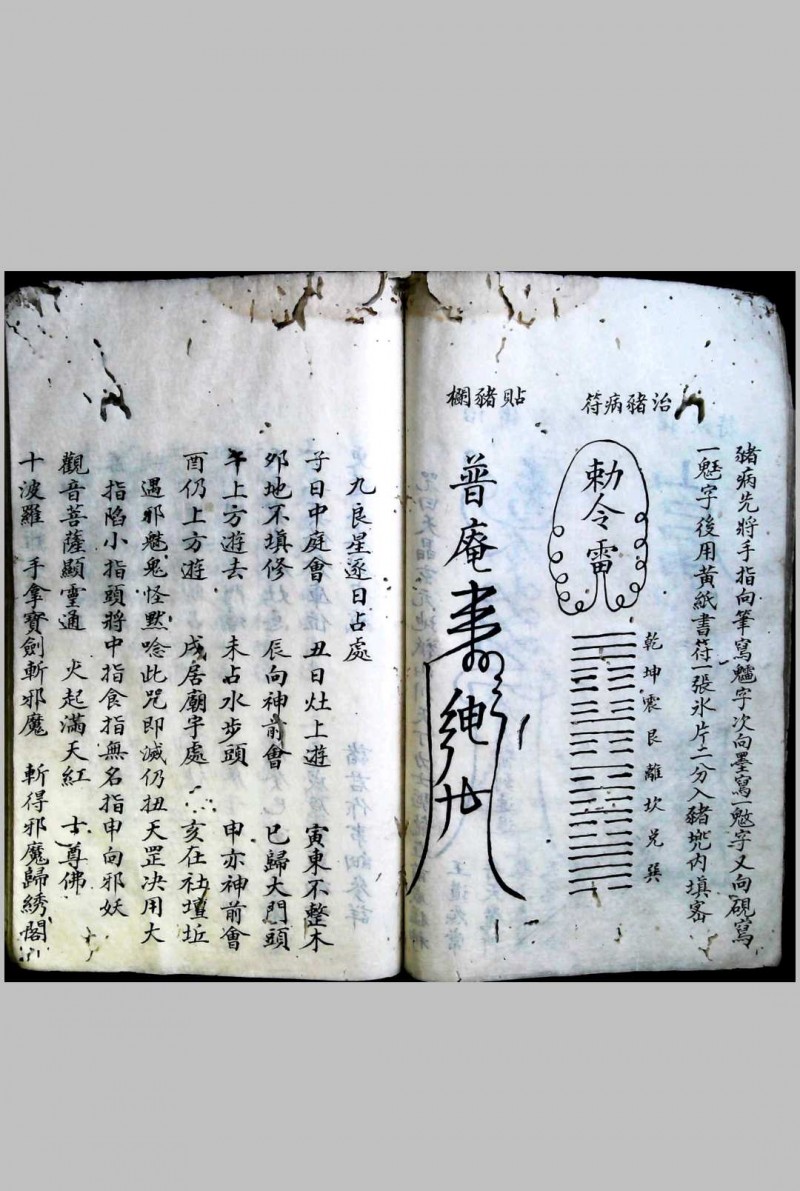 治豬病符
豬病先將手指向筆寫魖字次向墨寫一魃字又向硯寫
一魃字後用黃紙書符一張氷片二分入豬兠內填密
勅令雷
乾坤震艮離坎兌巽
貼豬欄
普庵
九良星逐日占處
子日中庭會 丑日灶上遊 寅東不整木
夘地不填修 辰向神前會 巳歸大門頭
午上方遊去 未占水步頭 申亦神前會
酉仍上方遊 戌居廟宇處 亥在社壇坵
遇邪魅鬼怪默唸此咒即滅仍扭天罡決用大
指陷小指頭將中指食指無名指申向邪妖
觀音菩薩顯靈通 火起滿天紅 士尊佛
十波羅 手拿寶劍斬邪魔 斬得邪魔歸綉閣